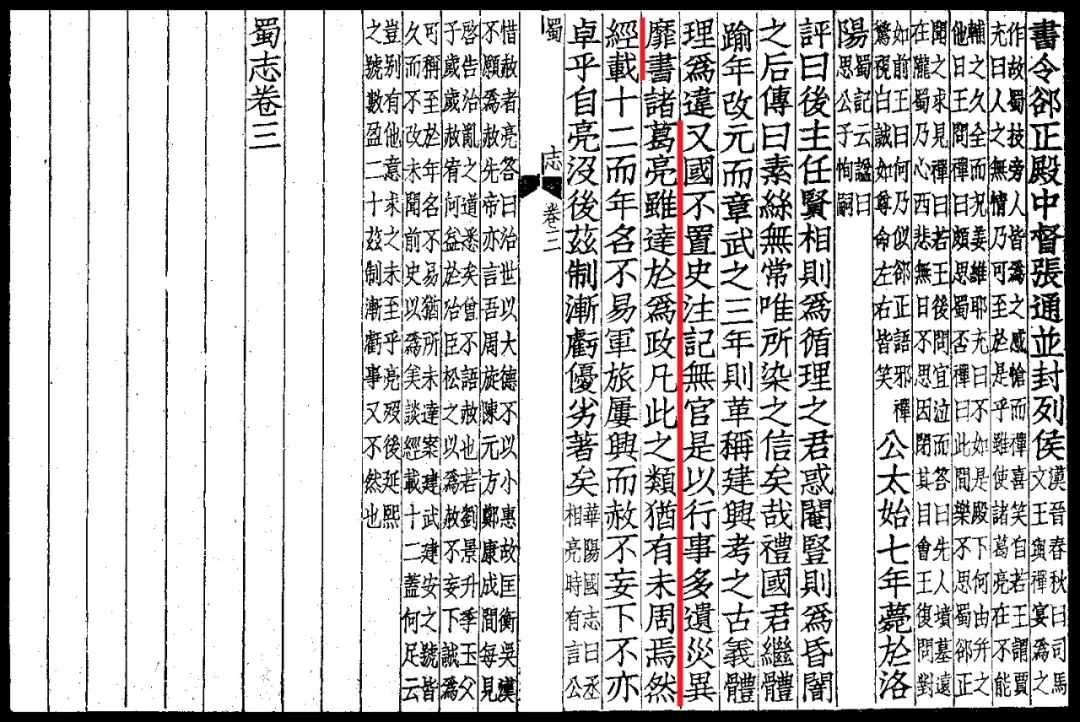 書令郤正殿中督張通並封列侯漢晉春秋曰司馬文王與禪宴爲之
作故蜀技旁人皆爲之感愴而禪喜笑自若王謂賈
充曰人之無情乃可至於是乎雖使諸葛亮在不能
輔之久全而況姜維耶充曰不如是殿下何由并之
他日王問禪曰頗思蜀否禪曰此間樂不思蜀郤正
聞之求見禪曰若王後問宜泣而答曰先人墳墓遠
在隴蜀乃心西悲無日不思因閉其目會王復問對
如前王曰何乃似郤正語邪禪驚視曰誠如尊命左右皆笑公太始七年薨於洛
陽蜀記云諡曰思公子恂嗣
評曰後主任賢相則爲循理之君惑閹豎則爲昏闇
之后傳曰素絲無常唯所染之信矣哉禮國君繼體
踰年改元而章武之三年則革稱建興考之古義體
理爲違又國不置史注記無官是以行事多遺災異
靡書諸葛亮雖達於爲政凡此之類猶有未周焉然
經載十二而年名不易軍旅屢興而赦不妄下不亦
卓乎自亮沒後茲制漸虧優劣著矣華陽國志曰丞相亮時有言公
蜀志 卷三
惜赦者亮答曰治世以大德不以小惠故匡衡吳漢
不願爲赦先帝亦言吾周旋陳元方鄭康成間每見
啓告治亂之道悉矣曾不語赦也若劉景升季玉父
子歲歲赦宥何益於治臣松之以爲赦不妄下誠爲
可稱至於年名不易猶所未達案建武建安之號皆
久而不改未聞前史以爲美談經載十二蓋何足云
豈別有他意求之未至乎亮歿後延熙
之號數盈二十茲制漸虧事又不然也
蜀志卷三